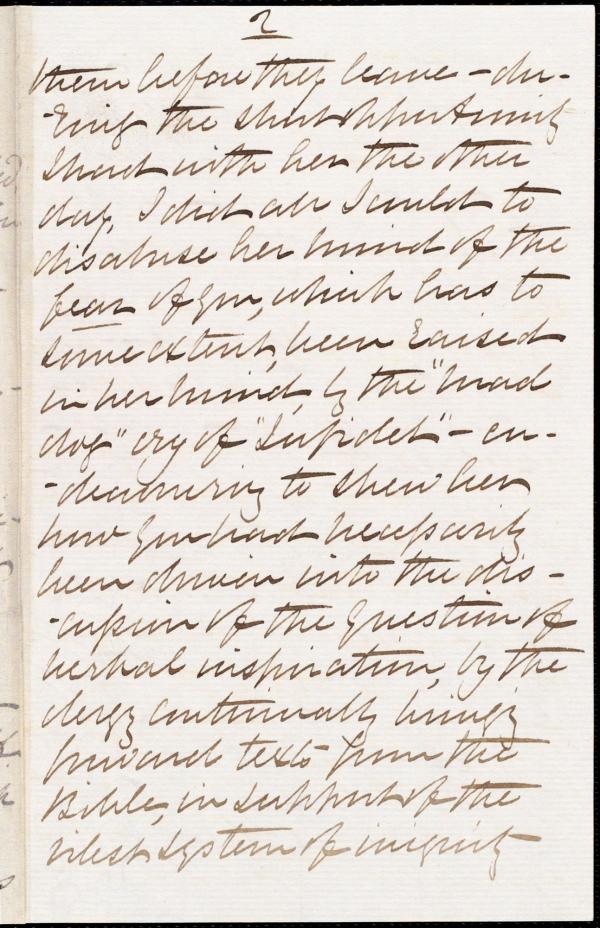 2
them before they leave - du-
-ring the short opportunity
I had with her the other
day, I did all I could to
disabuse her mind of the
fear of you, which has to
some extent, been raised
in her mind, by the "mad
dog" cry of "Infidel" - en-
-deavouring to shew her
how you had necessarily
been driven into the dis-
-cussion of the question of
verbal inspiration, by the
clergy continually bringing
forward texts from the
Bible, in support of the
vilest system of iniquity